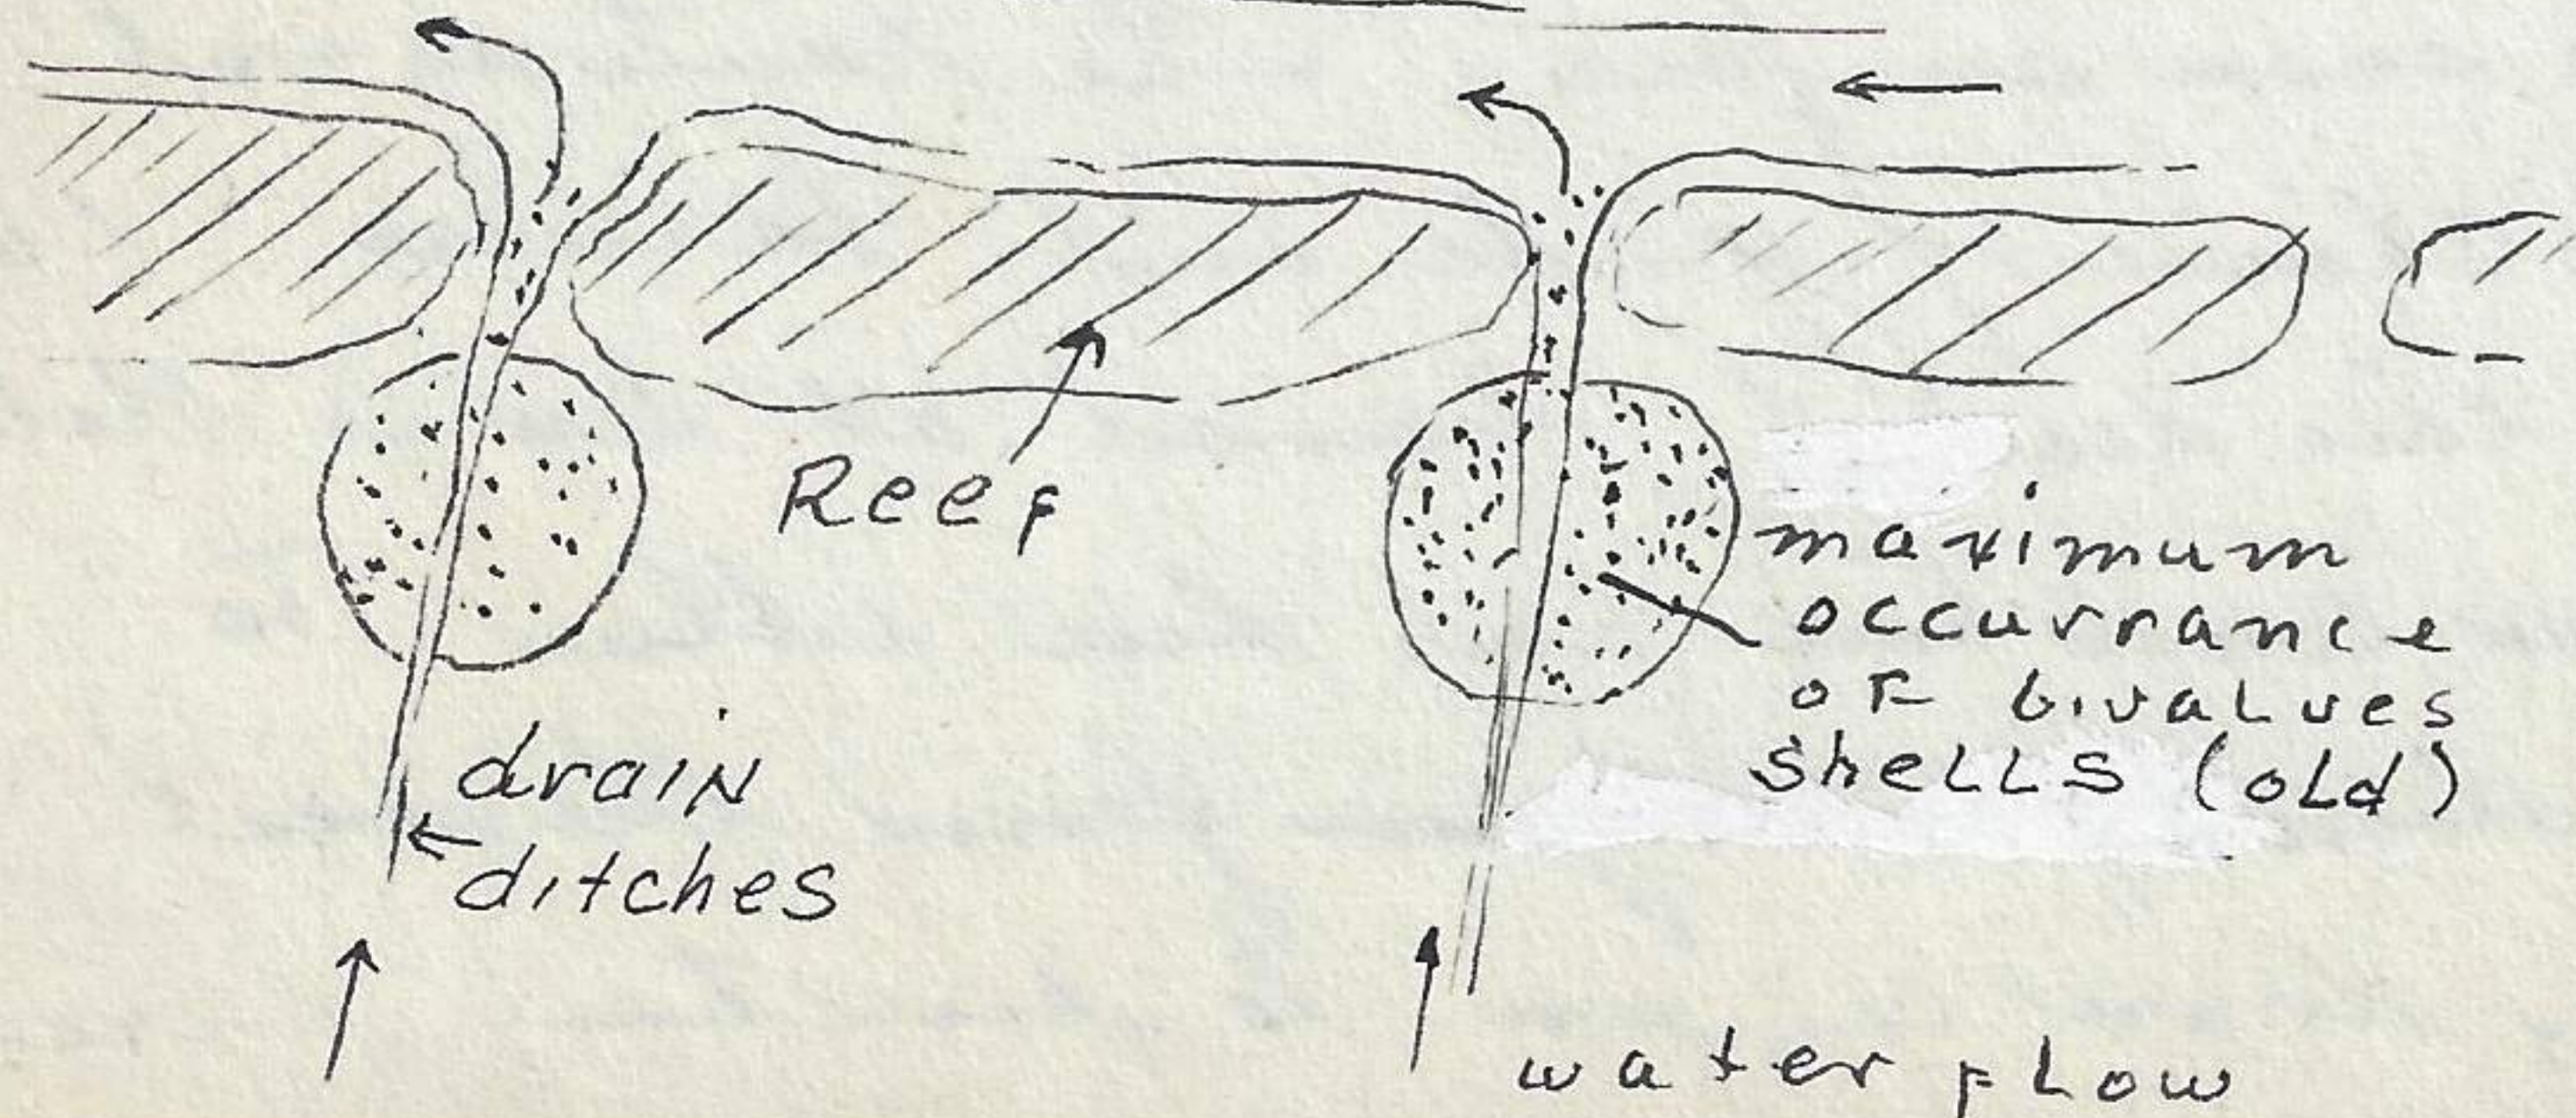 Reef
maximum
occurrance
of bivalves
shells (old)
drain
ditches
water flow